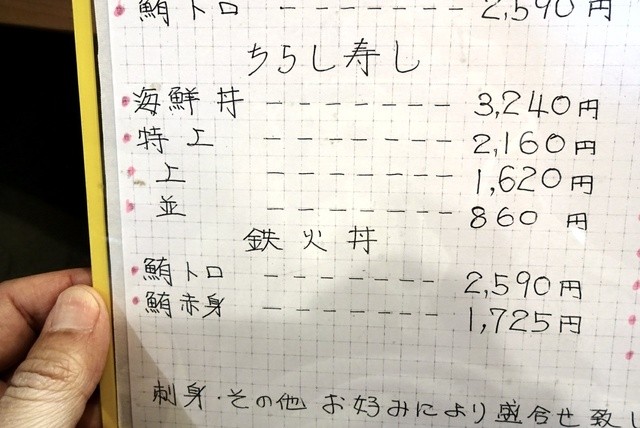 鮪トロ ------- 2,590円
ちらし寿し
海鮮丼 ------- 3,240円
特上 ------- 2,160円
上 ------- 1,620円
並 ------- 860円
鉄火丼
鮪トロ ------- 2,590円
鮪赤身 ------- 1,725円
刺身・その他 お好みにより盛合せ致し